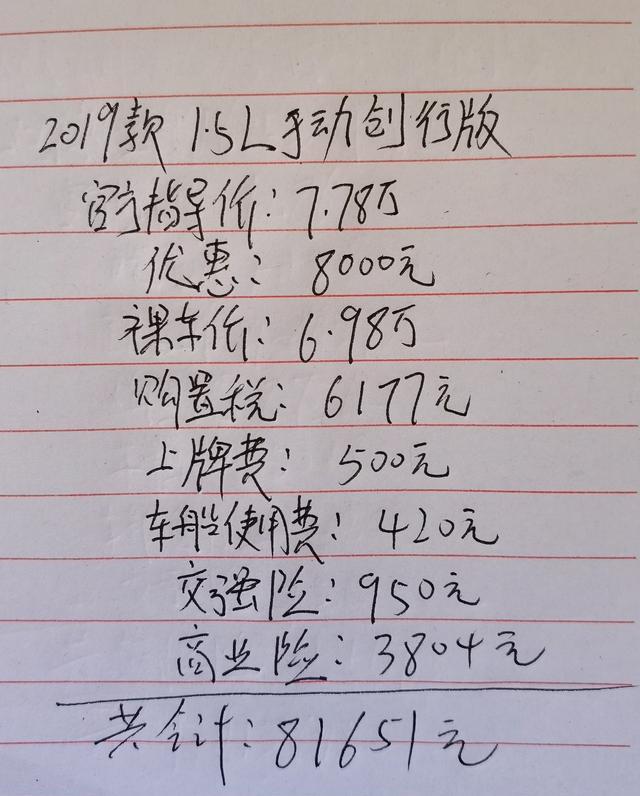 2019款 1.5L手动创行版
官方指导价：7.78万
优惠：8000元
裸车价：6.98万
购置税：6177元
上牌费：500元
车船使用费：420元
交强险：950元
商业险：3804元
共合计：81651元